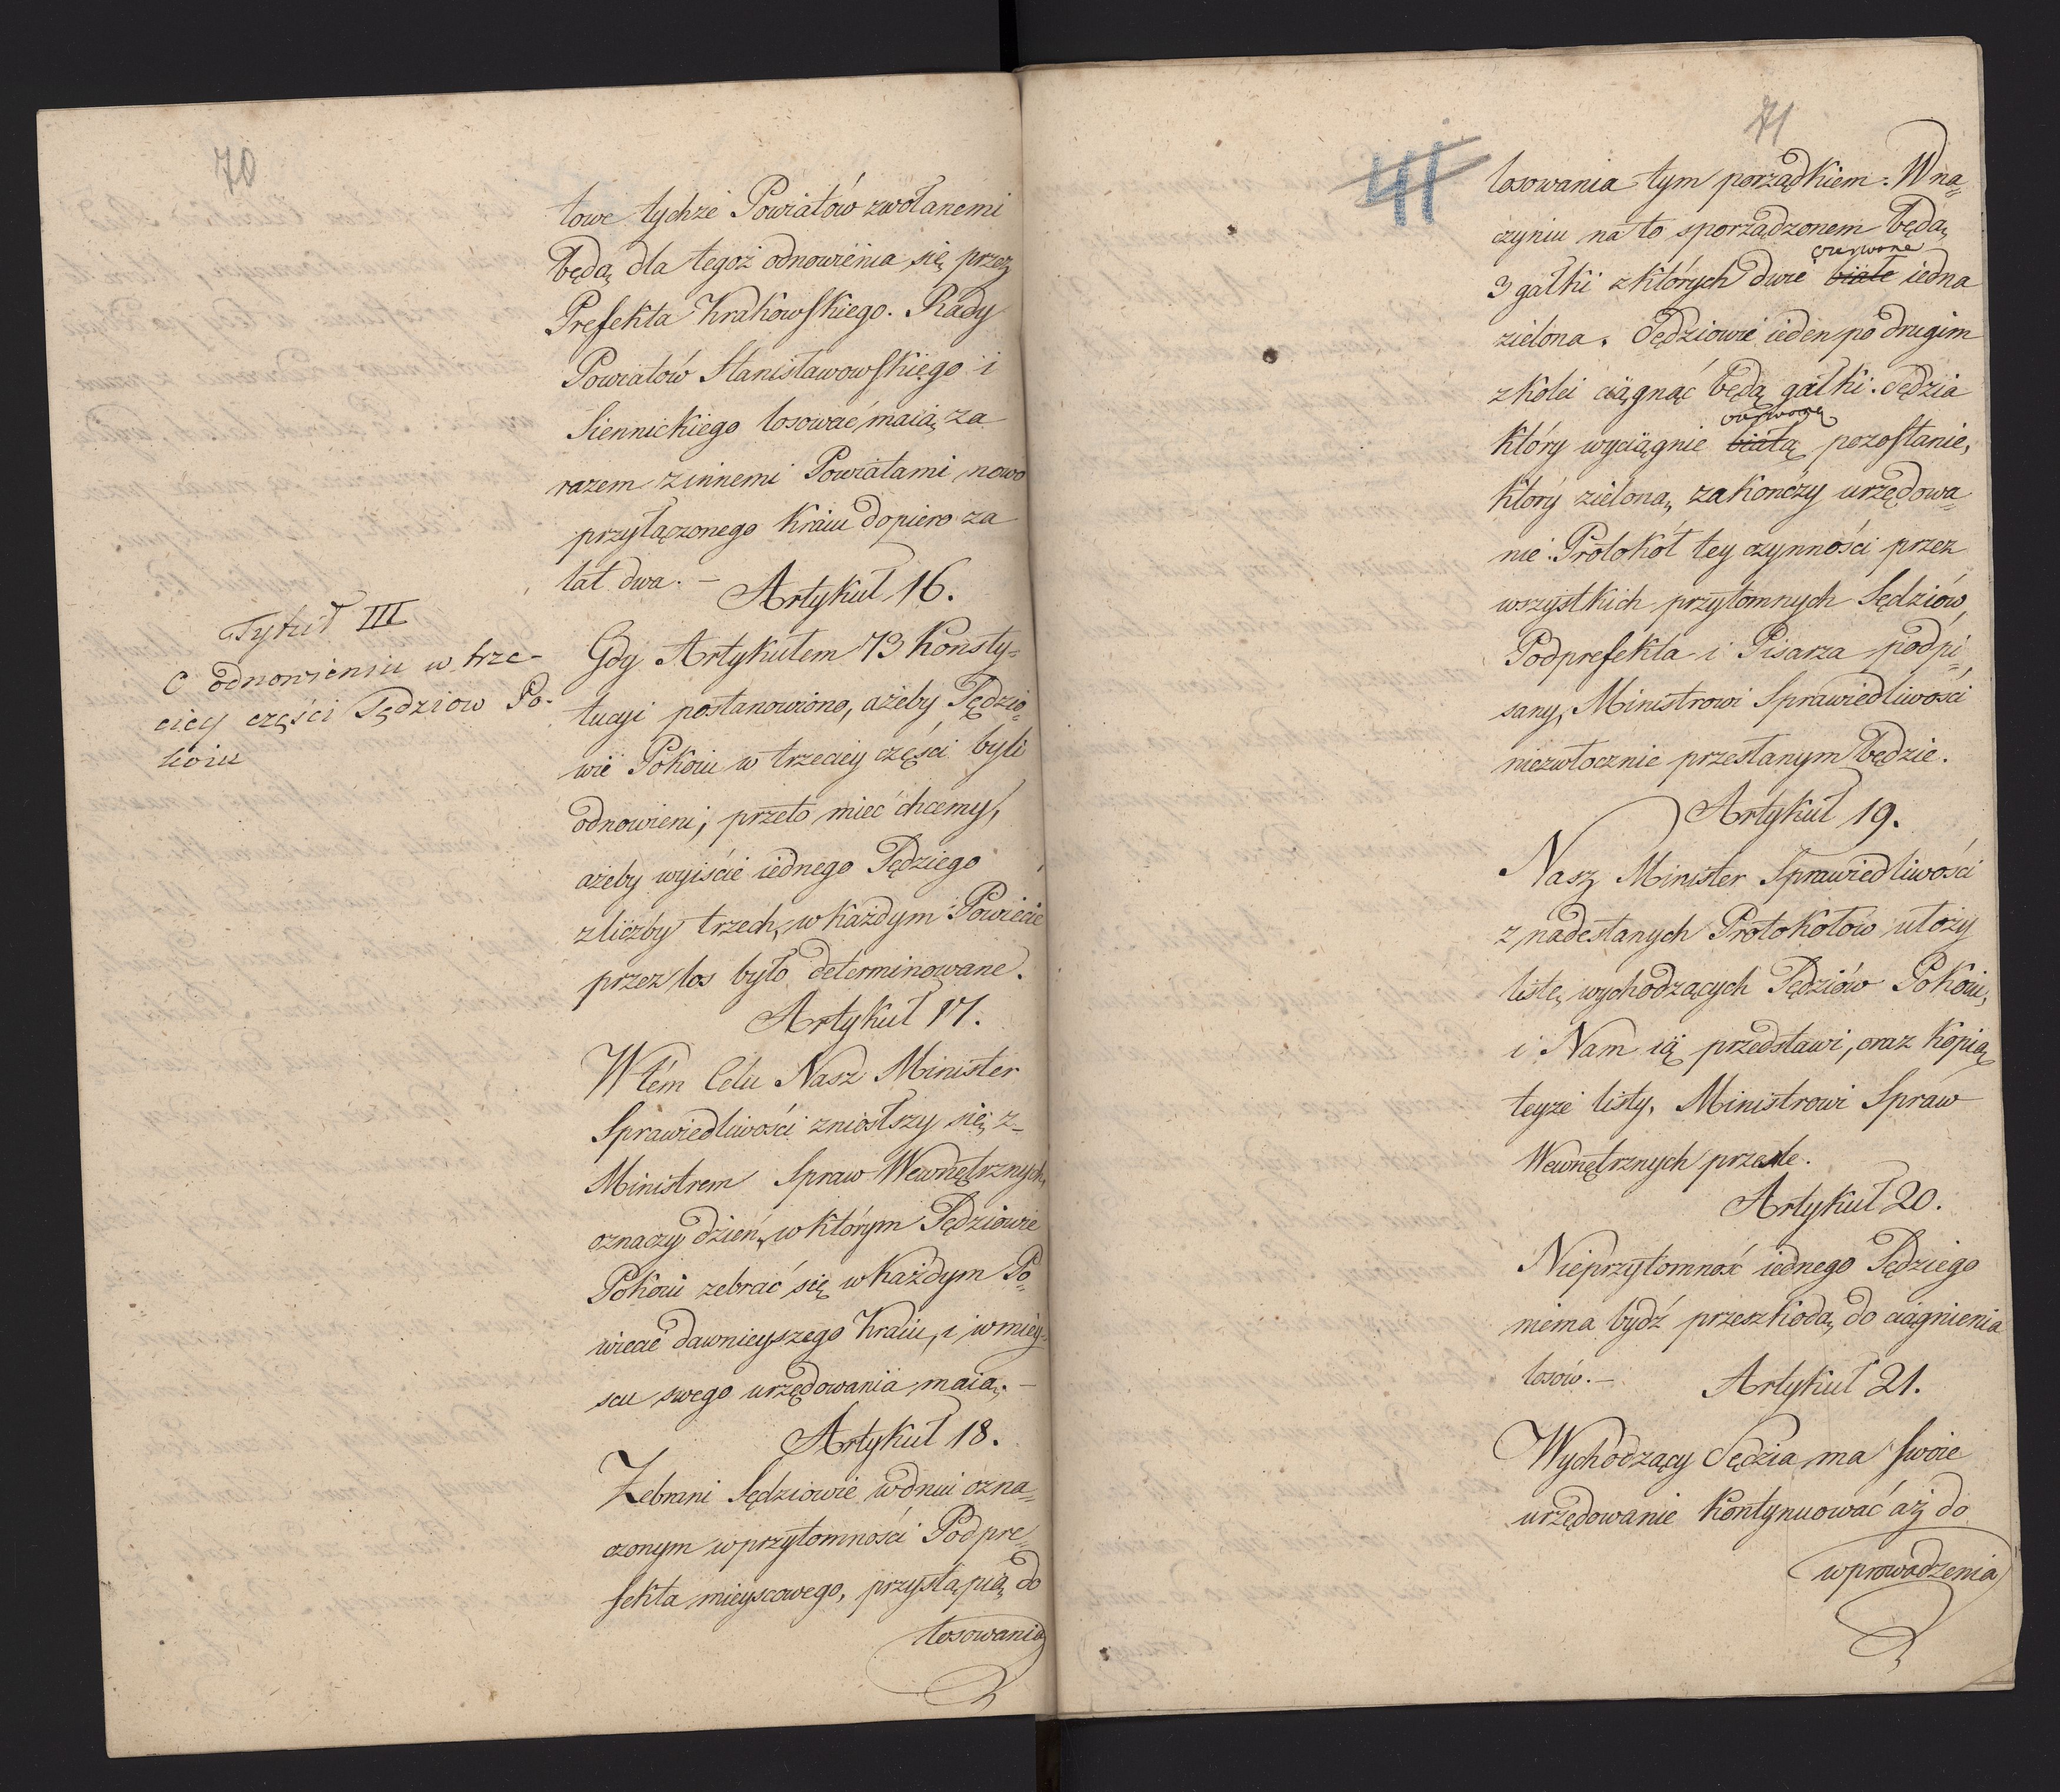 70
towe tychże Powiatów zwołanemi
będą dla tegoż odnowienia się przez
Prefekta Krakowskiego. Rady
Powiatów Stanisławowskiego i
Siennickiego losować maią za
razem z innemi Powiatami nowo
przyłączonego Kraiu dopiero za
lat dwa. –
Artykuł 16.
Tytuł III
O odnowieniu w trze-
ciey części Sędziow Po-
koiu
Gdy Artykułem 73 Konsty=
tucyi postanowiono, ażeby Sędzio=
wie Pokoiu w trzeciey części byli
odnowieni, przeto mieć chcemy,
ażeby wyiście iednego Sędziego
z liczby trzech, w każdym Powiecie
przez los było determinowane.
Artykuł 17.
W tém Celu Nasz Minister
Sprawiedliwości zniosłszy się z
Ministrem Spraw Wewnętrznych,
oznaczy dzień, w którym Sędziowie
Pokoiu zebrać się w każdym Po=
wiecie dawnieyszego Kraiu, i w miey=
scu swego urzędowania maią. –
Artykuł 18.
Zebrani Sędziowie w dniu ozna=
czonym w przytomności Podpre=
fekta mieyscowego, przystąpią do
losowania
41
71
losowania tym porządkiem. W na=
czyniu na to sporządzonem będą
czerwone
3 gałki z których dwie białe iedna
zielona. Sędziowie ieden po drugim
z kolei ciągnąć będą gałki. Sędzia
czerwoną
który wyciągnie białą pozostanie,
który zieloną, zakończy urzędowa=
nie. Protokół tey czynności przez
wszystkich przytomnych Sędziów,
Podprefekta i Pisarza podpi=
sany, Ministrowi Sprawiedliwości
niezwłocznie przesłanym będzie.
Artykuł 19.
Nasz Minister Sprawiedliwości
z nadesłanych Protokołów ułoży
listę wychodzących Sędziów Pokoiu,
i Nam ią przedstawi, oraz kopią
teyże listy, Ministrowi Spraw
Wewnętrznych prześle.
Artykuł 20.
Nieprzytomność iednego Sędziego
niema bydź przeszkodą do ciągnienia
losów. –
Artykuł 21.
Wychodzący Sędzia ma swoie
urzędowanie kontynuować aż do
wprowadzenia